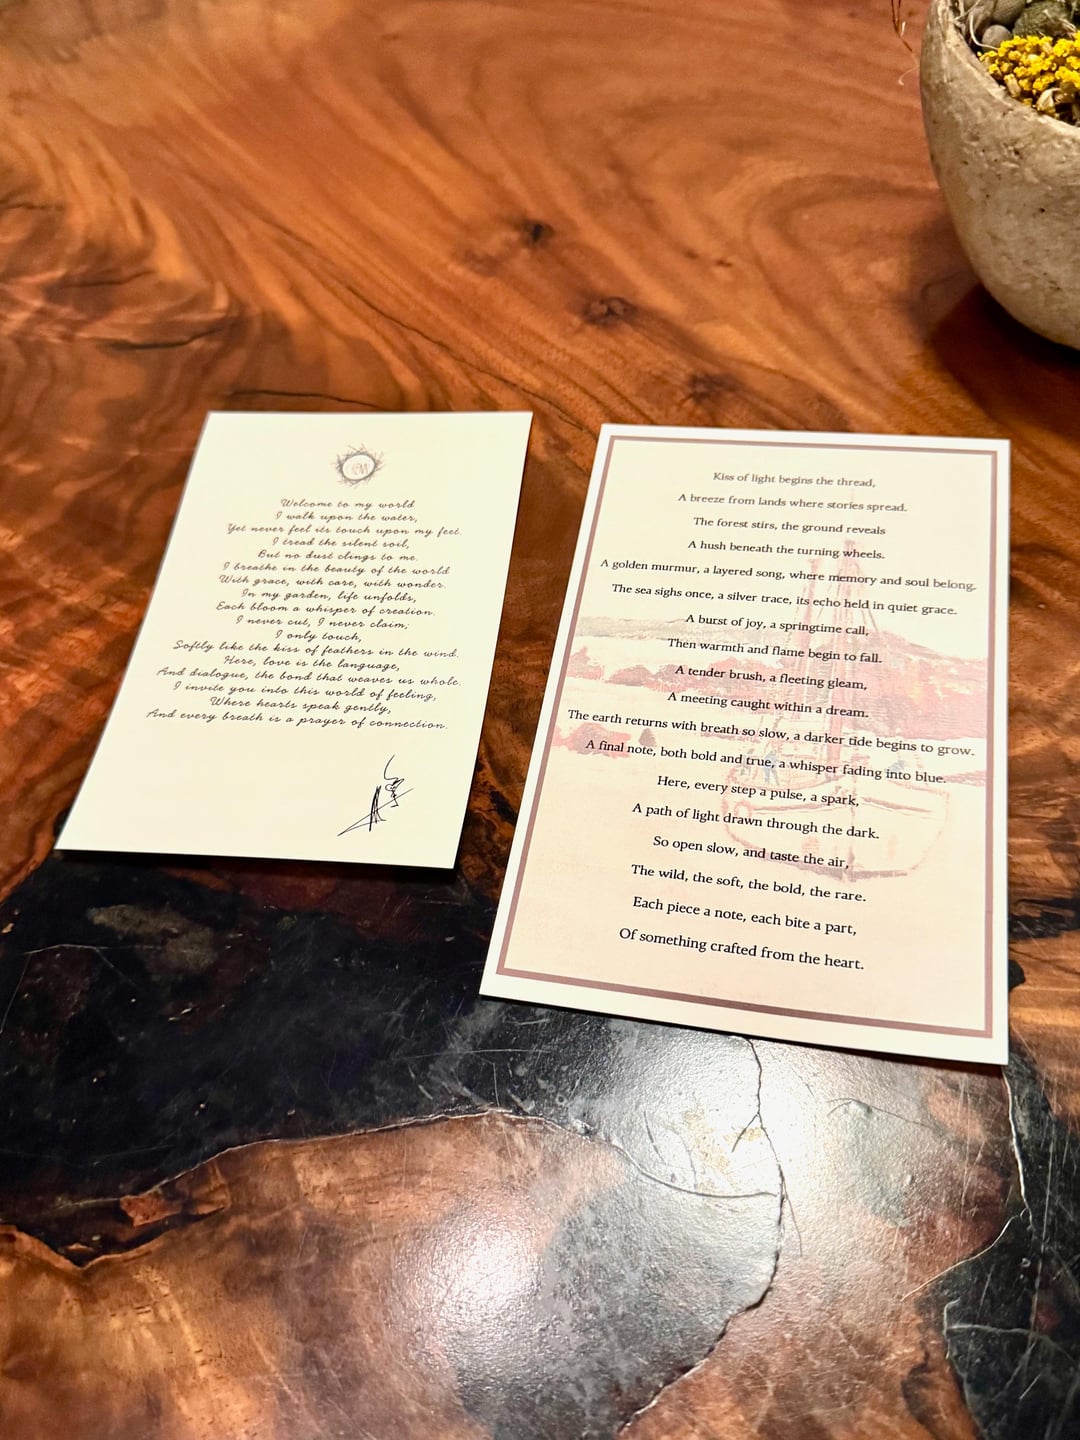 Welcome to my world
I walk upon the water,
Yet never feel its touch upon my feet.
I tread the silent soil,
But no dust clings to me.
I breathe in the beauty of the world
With grace, with care, with wonder.
In my garden, life unfolds,
Each bloom a whisper of creation.
I never cut, I never claim;
I only touch,
Softly like the kiss of feathers in the wind.
Here, love is the language,
And dialogue, the bond that weaves us whole.
I invite you into this world of feeling,
Where hearts speak gently,
And every breath is a prayer of connection.
Kiss of light begins the thread,
A breeze from lands where stories spread.
The forest stirs, the ground reveals
A hush beneath the turning wheels.
A golden murmur, a layered song, where memory and soul belong.
The sea sighs once, a silver trace, its echo held in quiet grace.
A burst of joy, a springtime call,
Then warmth and flame begin to fall.
A tender brush, a fleeting gleam,
A meeting caught within a dream.
The earth returns with breath so slow, a darker tide begins to grow.
A final note, both bold and true, a whisper fading into blue.
Here, every step a pulse, a spark,
A path of light drawn through the dark.
So open slow, and taste the air,
The wild, the soft, the bold, the rare.
Each piece a note, each bite a part,
Of something crafted from the heart.